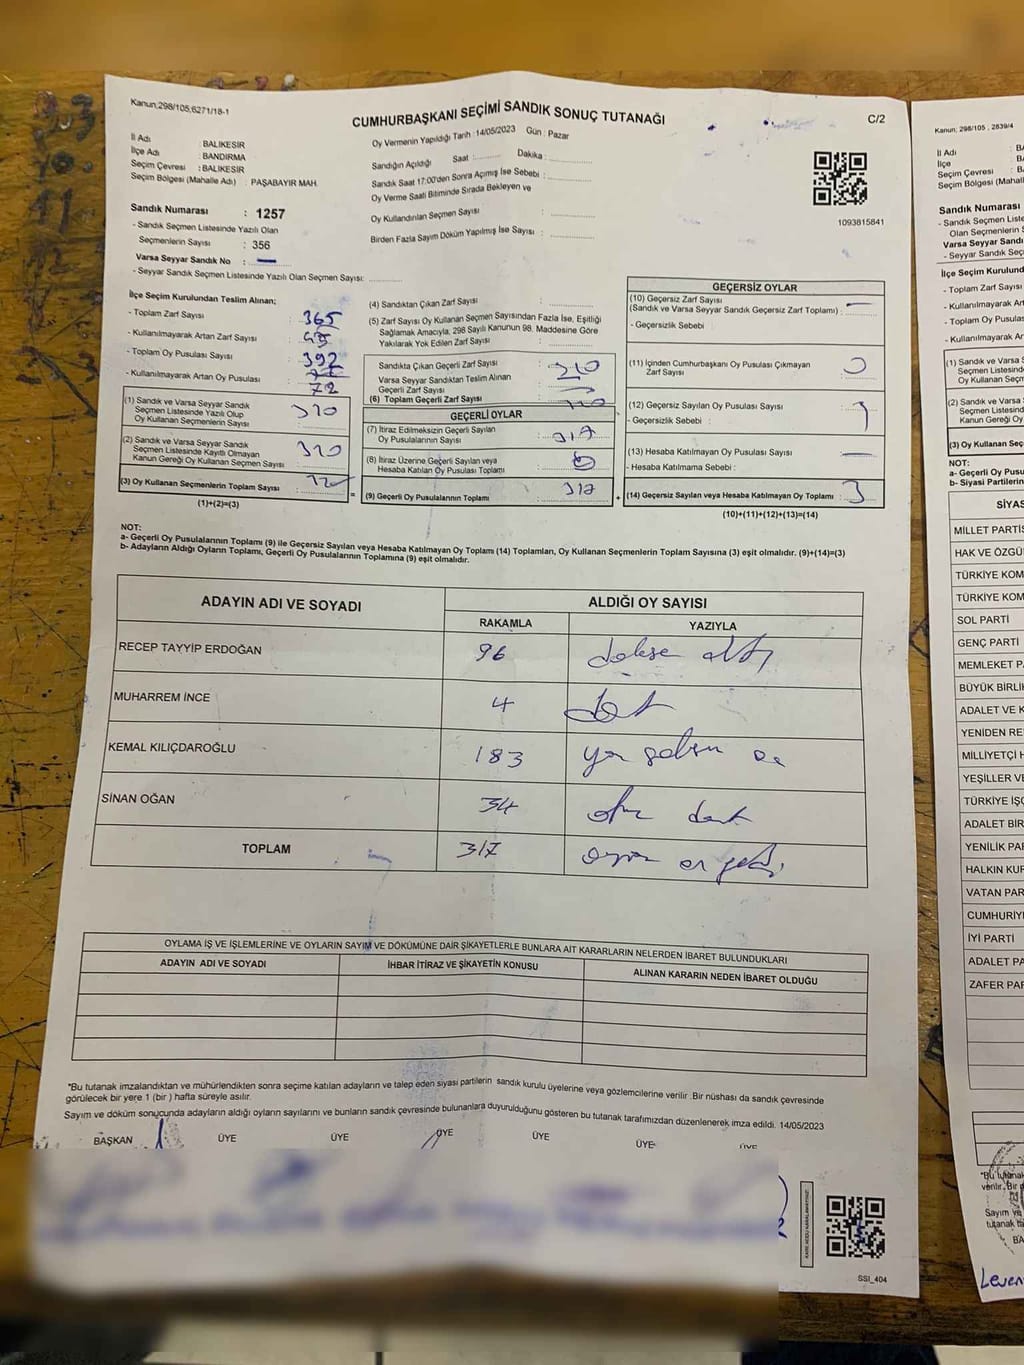 Kanun;298/105,6271/18-1
CUMHURBAŞKANI SEÇİMİ SANDIK SONUÇ TUTANAĞI
C/2
İl Adı : BALIKESİR
İlçe Adı : BANDIRMA
Seçim Çevresi : BALIKESİR
Seçim Bölgesi (Mahalle Adı) : PAŞABAYIR MAH.
Oy Vermenin Yapıldığı Tarih : 14/05/2023 Gün : Pazar
Sandığın Açıldığı Saat : Dakika :
Sandık Saat 17:00'den Sonra Açımış İse Sebebi :
Oy Verme Saati Bitiminde Sırada Bekleyen ve
Oy Kullandırılan Seçmen Sayısı :
Birden Fazla Sayım Döküm Yapılmış İse Sayısı :
1093815841
Sandık Numarası : 1257
- Sandık Seçmen Listesinde Yazılı Olan
Seçmenlerin Sayısı : 356
Varsa Seyyar Sandık No :
- Seyyar Sandık Seçmen Listesinde Yazılı Olan Seçmen Sayısı:
İlçe Seçim Kurulundan Teslim Alınan;
- Toplam Zarf Sayısı : 365
- Kullanılmayarak Artan Zarf Sayısı : 45
- Toplam Oy Pusulası Sayısı : 392
- Kullanılmayarak Artan Oy Pusulası : 72
(1) Sandık ve Varsa Seyyar Sandık
Seçmen Listesinde Yazılı Olup
Oy Kullanan Seçmenlerin Sayısı : 320
(2) Sandık ve Varsa Seyyar Sandık
Seçmen Listesinde Kayıtlı Olmayan
Kanun Gereği Oy Kullanan Seçmen Sayısı : 320
(3) Oy Kullanan Seçmenlerin Toplam Sayısı :
(1)+(2)=(3)
(4) Sandıktan Çıkan Zarf Sayısı :
(5) Zarf Sayısı Oy Kullanan Seçmen Sayısından Fazla İse, Eşitliği
Sağlamak Amacıyla, 298 Sayılı Kanunun 98. Maddesine Göre
Yakılarak Yok Edilen Zarf Sayısı :
Sandıkta Çıkan Geçerli Zarf Sayısı : 320
Varsa Seyyar Sandıktan Teslim Alınan
Geçerli Zarf Sayısı :
(6) Toplam Geçerli Zarf Sayısı : 320
GEÇERLİ OYLAR
(7) İtiraz Edilmeksizin Geçerli Sayılan
Oy Pusulalarının Sayısı : 317
(8) İtiraz Üzerine Geçerli Sayılan veya
Hesaba Katılan Oy Pusulası Toplamı :
(9) Geçerli Oy Pusulalarının Toplamı : 317
GEÇERSİZ OYLAR
(10) Geçersiz Zarf Sayısı
(Sandık ve Varsa Seyyar Sandık Geçersiz Zarf Toplamı) :
- Geçersizlik Sebebi :
(11) İçinden Cumhurbaşkanı Oy Pusulası Çıkmayan
Zarf Sayısı :
(12) Geçersiz Sayılan Oy Pusulası Sayısı : 3
- Geçersizlik Sebebi :
(13) Hesaba Katılmayan Oy Pusulası Sayısı :
- Hesaba Katılmama Sebebi :
(14) Geçersiz Sayılan veya Hesaba Katılmayan Oy Toplamı : 3
(10)+(11)+(12)+(13)=(14)
NOT:
a- Geçerli Oy Pusulalarının Toplamı (9) ile Geçersiz Sayılan veya Hesaba Katılmayan Oy Toplamı (14) Toplamları, Oy Kullanan Seçmenlerin Toplam Sayısına (3) eşit olmalıdır. (9)+(14)=(3)
b- Adayların Aldığı Oyların Toplamı, Geçerli Oy Pusulalarının Toplamına (9) eşit olmalıdır.
ADAYIN ADI VE SOYADI
ALDIĞI OY SAYISI
RAKAMLA YAZIYLA
RECEP TAYYİP ERDOĞAN 96 doksan altı
MUHARREM İNCE 4 dört
KEMAL KILIÇDAROĞLU 183 yüz seksen üç
SİNAN OĞAN 34 otuz dört
TOPLAM 317
OYLAMA İŞ VE İŞLEMLERİNE VE OYLARIN SAYIM VE DÖKÜMÜNE DAİR ŞİKAYETLERLE BUNLARA AİT KARARLARIN NELERDEN İBARET BULUNDUKLARI
ADAYIN ADI VE SOYADI İHBAR İTİRAZ VE ŞİKAYETİN KONUSU ALINAN KARARIN NEDEN İBARET OLDUĞU
"Bu tutanak imzalandıktan ve mühürlendikten sonra seçime katılan adayların ve talep eden siyasi partilerin sandık kurulu üyelerine veya gözlemcilerine verilir .Bir nüshası da sandık çevresinde
görülecek bir yere 1 (bir ) hafta süreyle asılır.
Sayım ve döküm sonucunda adayların aldığı oyların sayılarını ve bunların sandık çevresinde bulunanlara duyurulduğunu gösteren bu tutanak tarafımızdan düzenlenerek imza edildi. 14/05/2023
BAŞKAN ÜYE ÜYE ÜYE ÜYE ÜYE ÜYE
SSI_404
Kanun; 298/105 , 2839/4
İl Adı
İlçe
Seçim Çevresi
Seçim Bölgesi (Mahalle
Sandık Numarası
- Sandık Seçmen Liste
Olan Seçmenlerin S
Varsa Seyyar Sandı
- Seyyar Sandık Seçm
İlçe Seçim Kurulund
- Toplam Zarf Sayısı
- Kullanılmayarak Arta
- Toplam Oy Pusulası
- Kullanılmayarak Artan
(1) Sandık ve Varsa S
Seçmen Listesinde
Oy Kullanan Seçme
(2) Sandık ve Varsa S
Seçmen Listesinde
Kanun Gereği Oy
(3) Oy Kullanan Seçm
NOT:
a- Geçerli Oy Pusu
b- Siyasi Partilerin
SİYAS
MİLLET PARTİS
HAK VE ÖZGÜ
TÜRKİYE KOM
TÜRKİYE KOM
SOL PARTİ
GENÇ PARTİ
MEMLEKET PA
BÜYÜK BİRLİK
ADALET VE K
YENİDEN RE
MİLLİYETÇİ H
YEŞİLLER VE
TÜRKİYE İŞÇ
ADALET BİR
YENİLİK PAR
HALKIN KUR
VATAN PAR
CUMHURİY
İYİ PARTİ
ADALET PA
ZAFER PAR
"Bu tutanak
verilir. Bir
Sayım ve
tutanak ta
BA
Leven